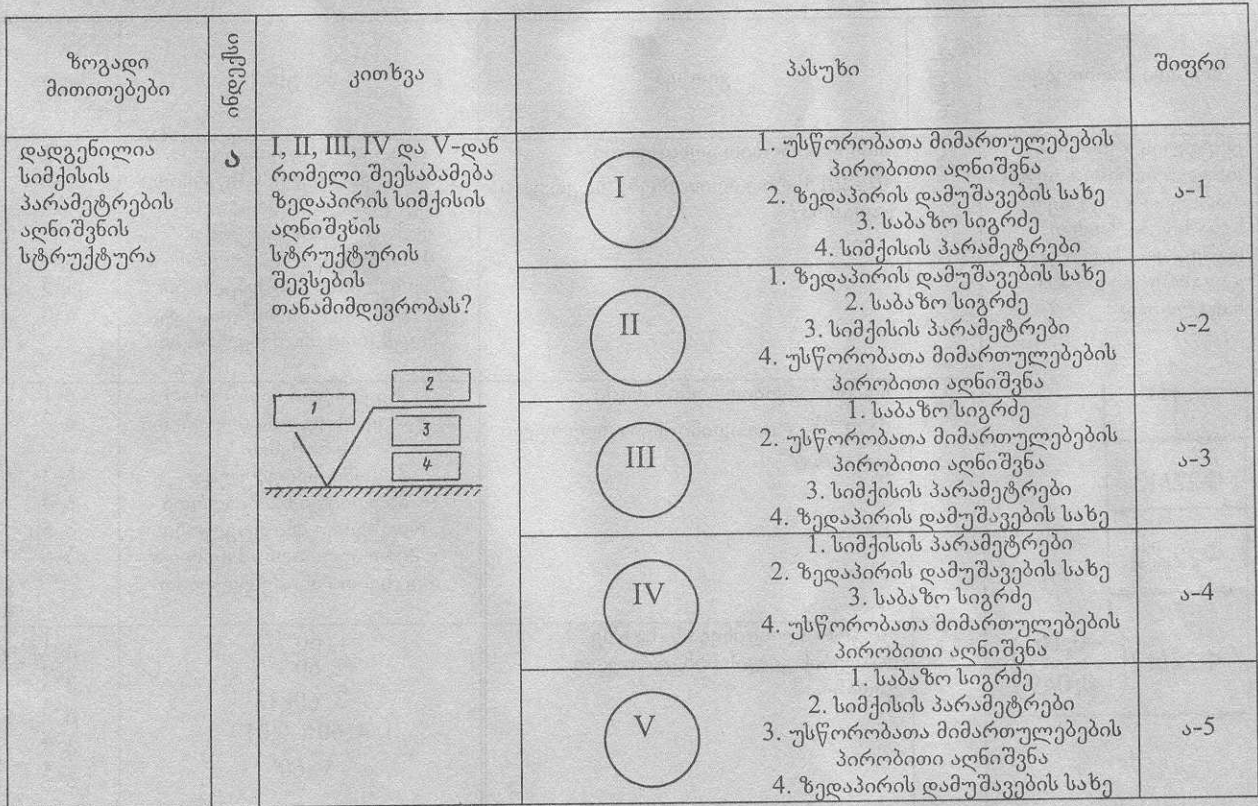 ზოგადი
მითითებები
ინდექსი
კითხვა
პასუხი
შიფრი
დადგენილია
სიმქისის
პარამეტრების
აღნიშვნის
სტრუქტურა
ა
I, II, III, IV და V-დან
რომელი შეესაბამება
ზედაპირის სიმქისის
აღნიშვნის
სტრუქტურის
შევსების
თანამიმდევრობას?
1
2
3
4
I
1. უსწორობათა მიმართულებების
პირობითი აღნიშვნა
2. ზედაპირის დამუშავების სახე
3. საბაზო სიგრძე
4. სიმქისის პარამეტრები
ა-1
II
1. ზედაპირის დამუშავების სახე
2. საბაზო სიგრძე
3. სიმქისის პარამეტრები
4. უსწორობათა მიმართულებების
პირობითი აღნიშვნა
ა-2
III
1. საბაზო სიგრძე
2. უსწორობათა მიმართულებების
პირობითი აღნიშვნა
3. სიმქისის პარამეტრები
4. ზედაპირის დამუშავების სახე
ა-3
IV
1. სიმქისის პარამეტრები
2. ზედაპირის დამუშავების სახე
3. საბაზო სიგრძე
4. უსწორობათა მიმართულებების
პირობითი აღნიშვნა
ა-4
V
1. საბაზო სიგრძე
2. სიმქისის პარამეტრები
3. უსწორობათა მიმართულებების
პირობითი აღნიშვნა
4. ზედაპირის დამუშავების სახე
ა-5